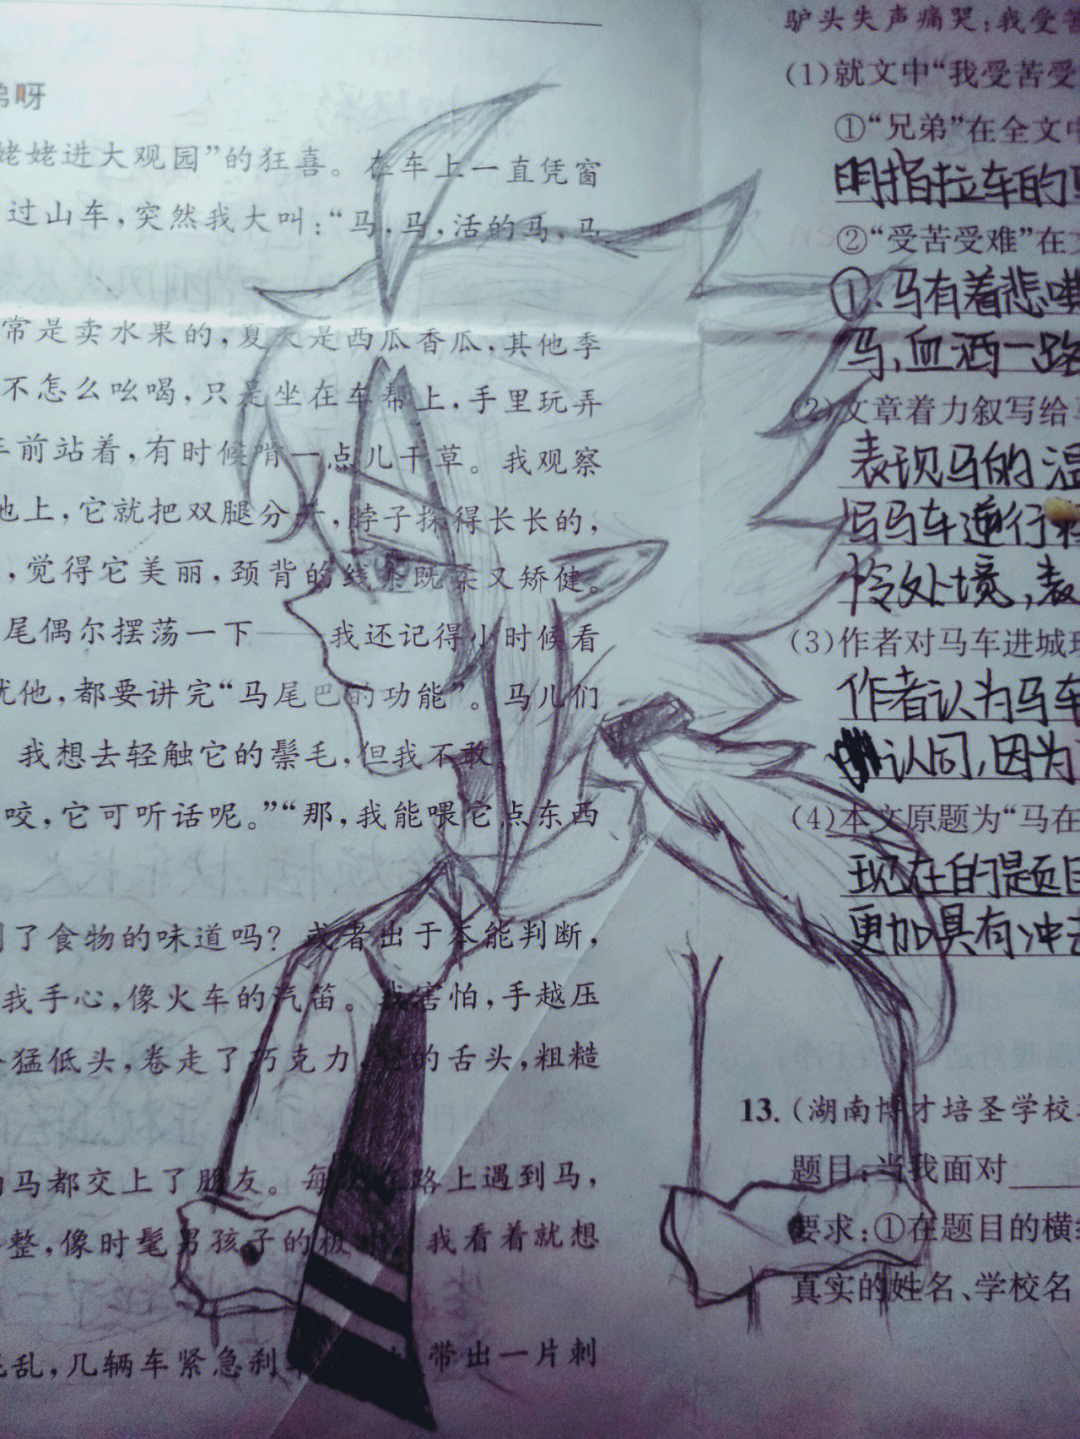 弟呀
姥姥进大观园”的狂喜。在车上一直凭窗
过山车，突然我大叫：“马，马，活的马，马
常是卖水果的，夏天是西瓜香瓜，其他季
不怎么吆喝，只是坐在车帮上，手里玩弄
车前站着，有时候啃一点儿干草。我观察
地上，它就把双腿分开，脖子探得长长的，
，觉得它美丽，颈背的线条既柔又矫健。
尾偶尔摆荡一下——我还记得小时候看
他，都要讲完“马尾巴的功能”。马儿们
我想去轻触它的鬃毛，但我不敢
咬，它可听话呢。”“那，我能喂它点东西
了食物的味道吗？或者出于本能判断，
我手心，像火车的汽笛。我害怕，手越压
猛低头，卷走了巧克力，它的舌头，粗糙
马都交上了朋友。每次在路上遇到马，
整，像时髦男孩子的板，我看着就想
乱，几辆车紧急刹车，带出一片刺
驴头失声痛哭：我受苦
(1)就文中“我受苦受
①“兄弟”在全文中
明指拉车的马
②“受苦受难”在文
①、马有着悲
马，血洒一路
(2)文章着力叙写给马
表现马的温
写马车逆行
怜处境，表
(3)作者对马车进城现
作者认为马车
认同，因为
(4)本文原题为“马在
现在的题目
更加具有冲击
13.（湖南博才培圣学校
题目：当我面对____
要求：①在题目的横线
真实的姓名、学校名